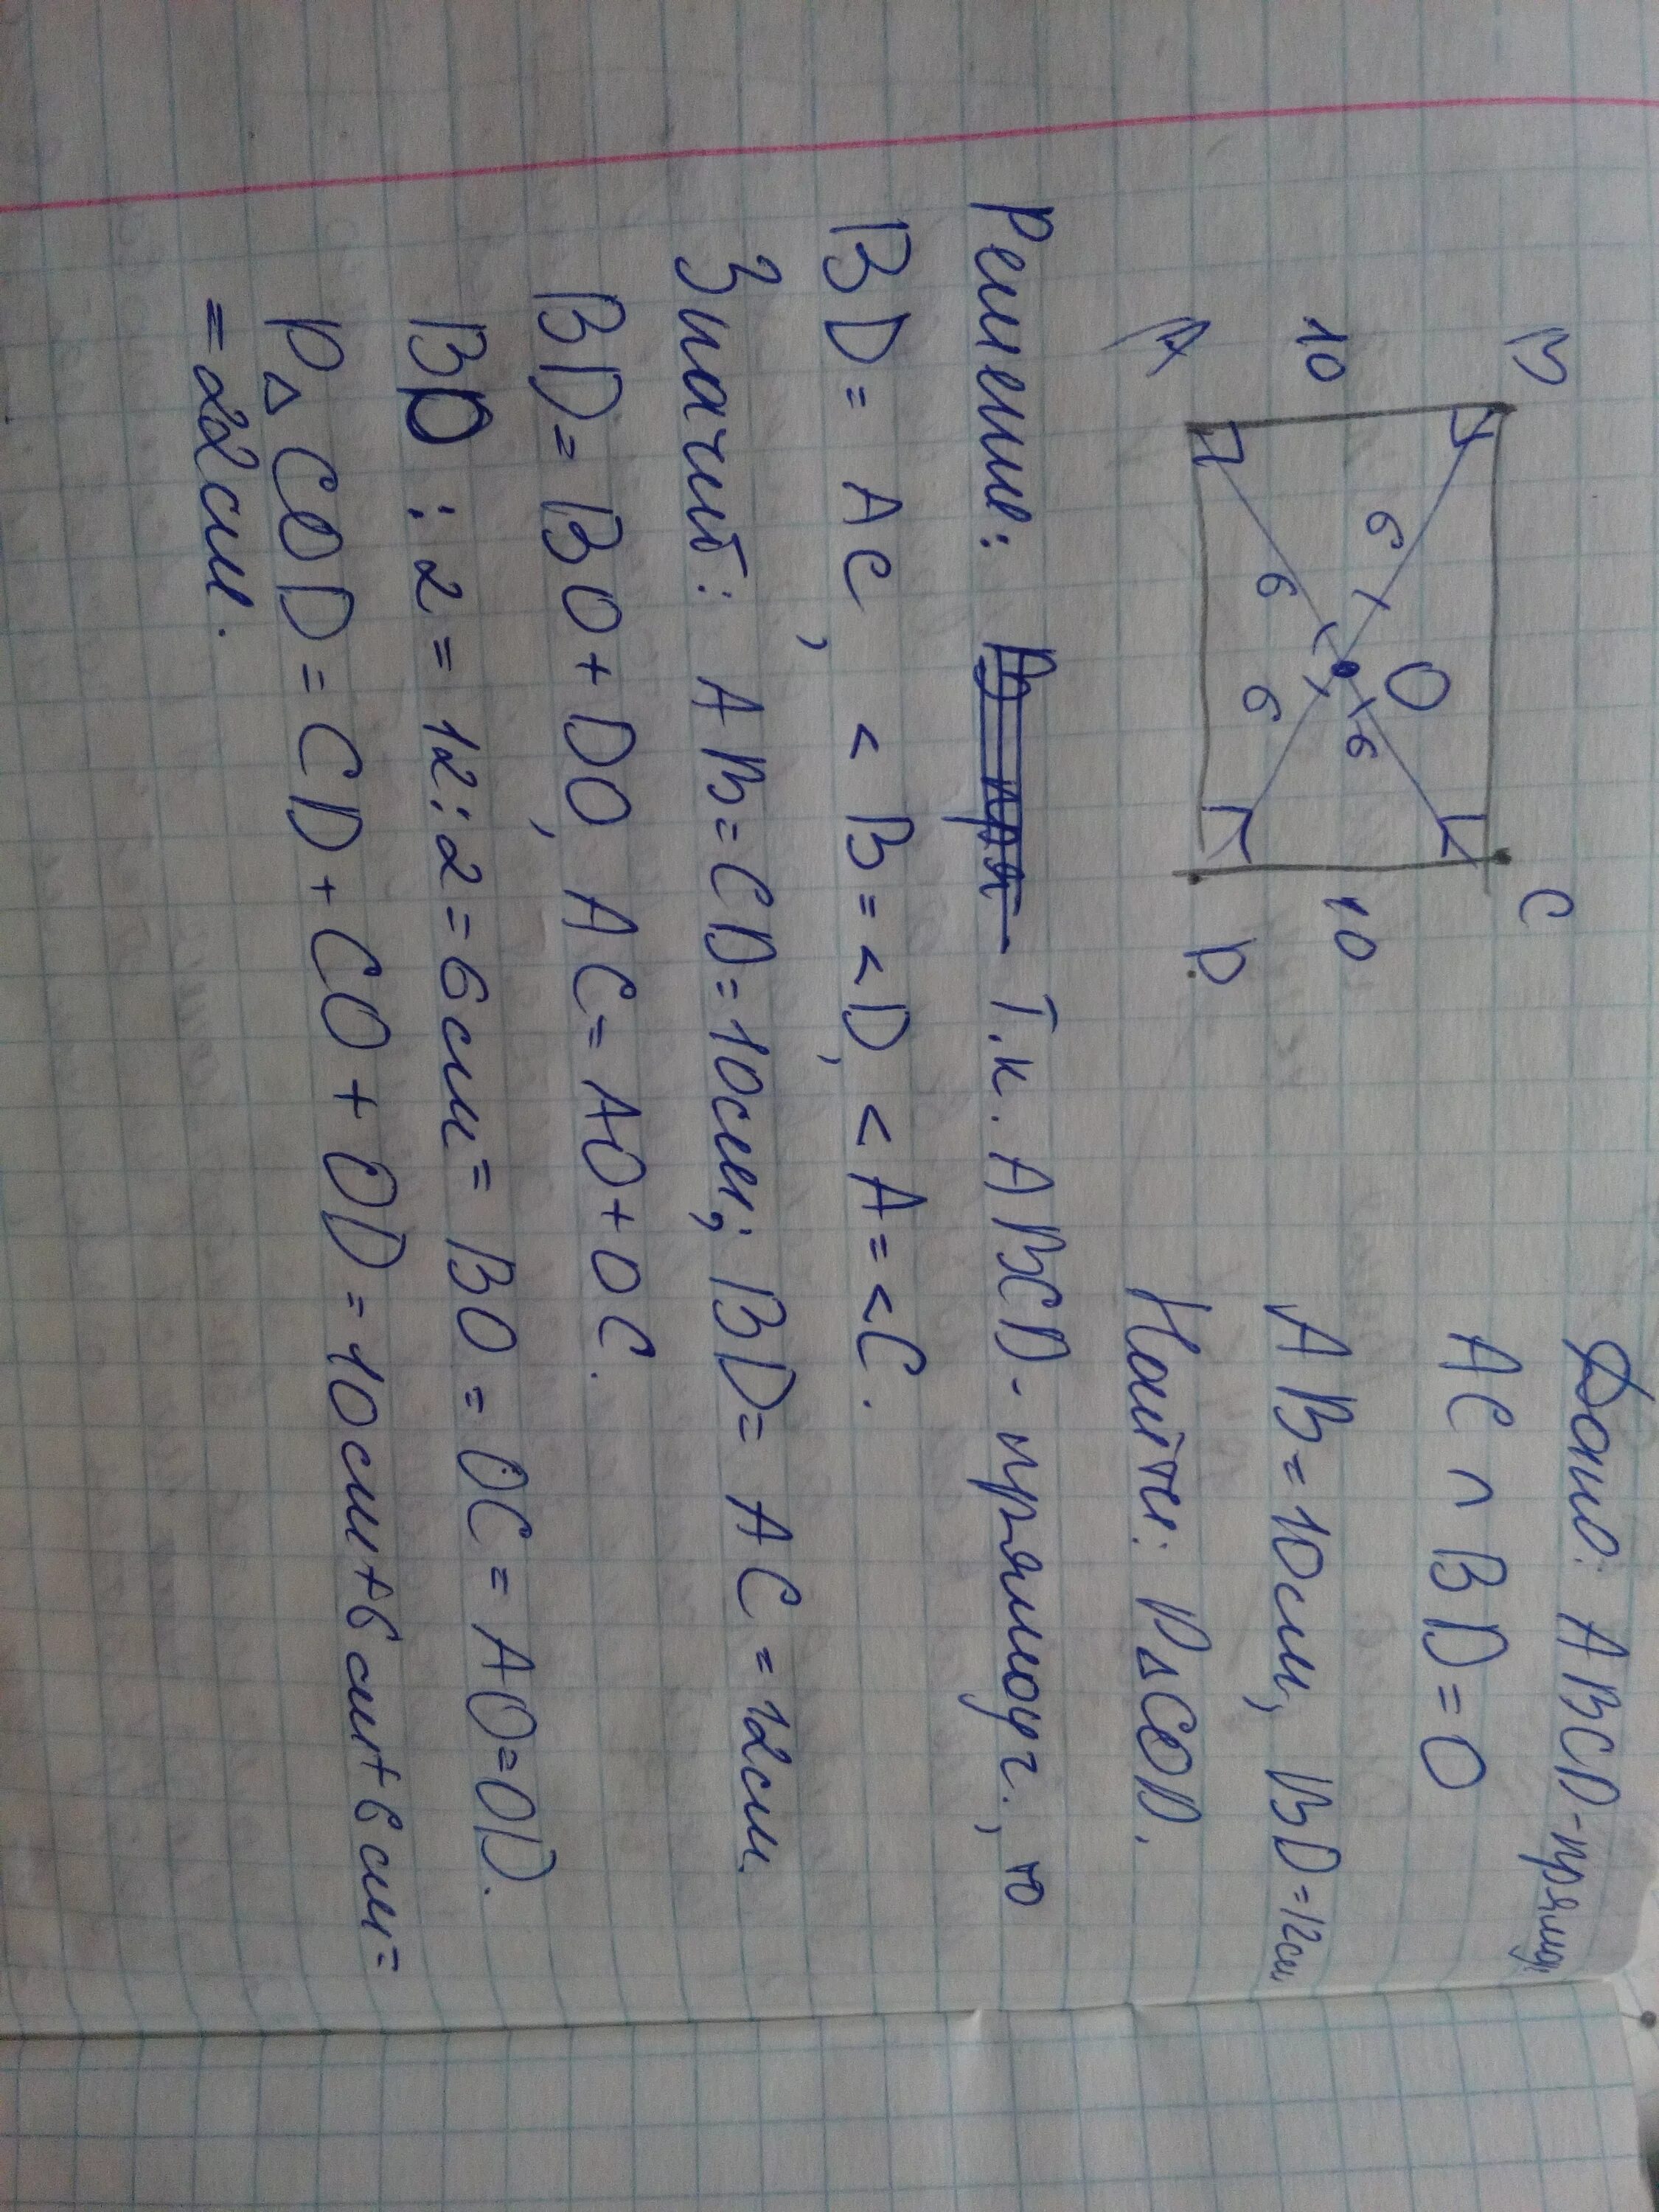 Дано: ABCD-прямоуг.
AC ∩ BD = O
AB=10см, BD=12см
Найти: P△COD.
B
C
10
6
O
6
10
6
6
A
D
Решение: Т.к. ABCD-прямоуг., то
BD = AC, < B = <D, < A = <C.
Значит: AB=CD=10см; BD= AC =12см.
BD= BO+DO, AC= AO+OC.
BD : 2 = 12:2=6см= BO = OC = AO=OD.
P△ COD = CD+CO+OD =10см+6см+6см=
=22см.